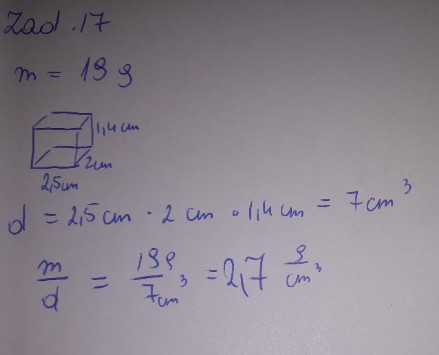 Zad.17
m = 19 g
1,4 cm
2cm
2,5cm
d = 2,5cm · 2 cm · 1,4 cm = 7cm³
m/d = 19g/7cm³ = 2,7 g/cm³